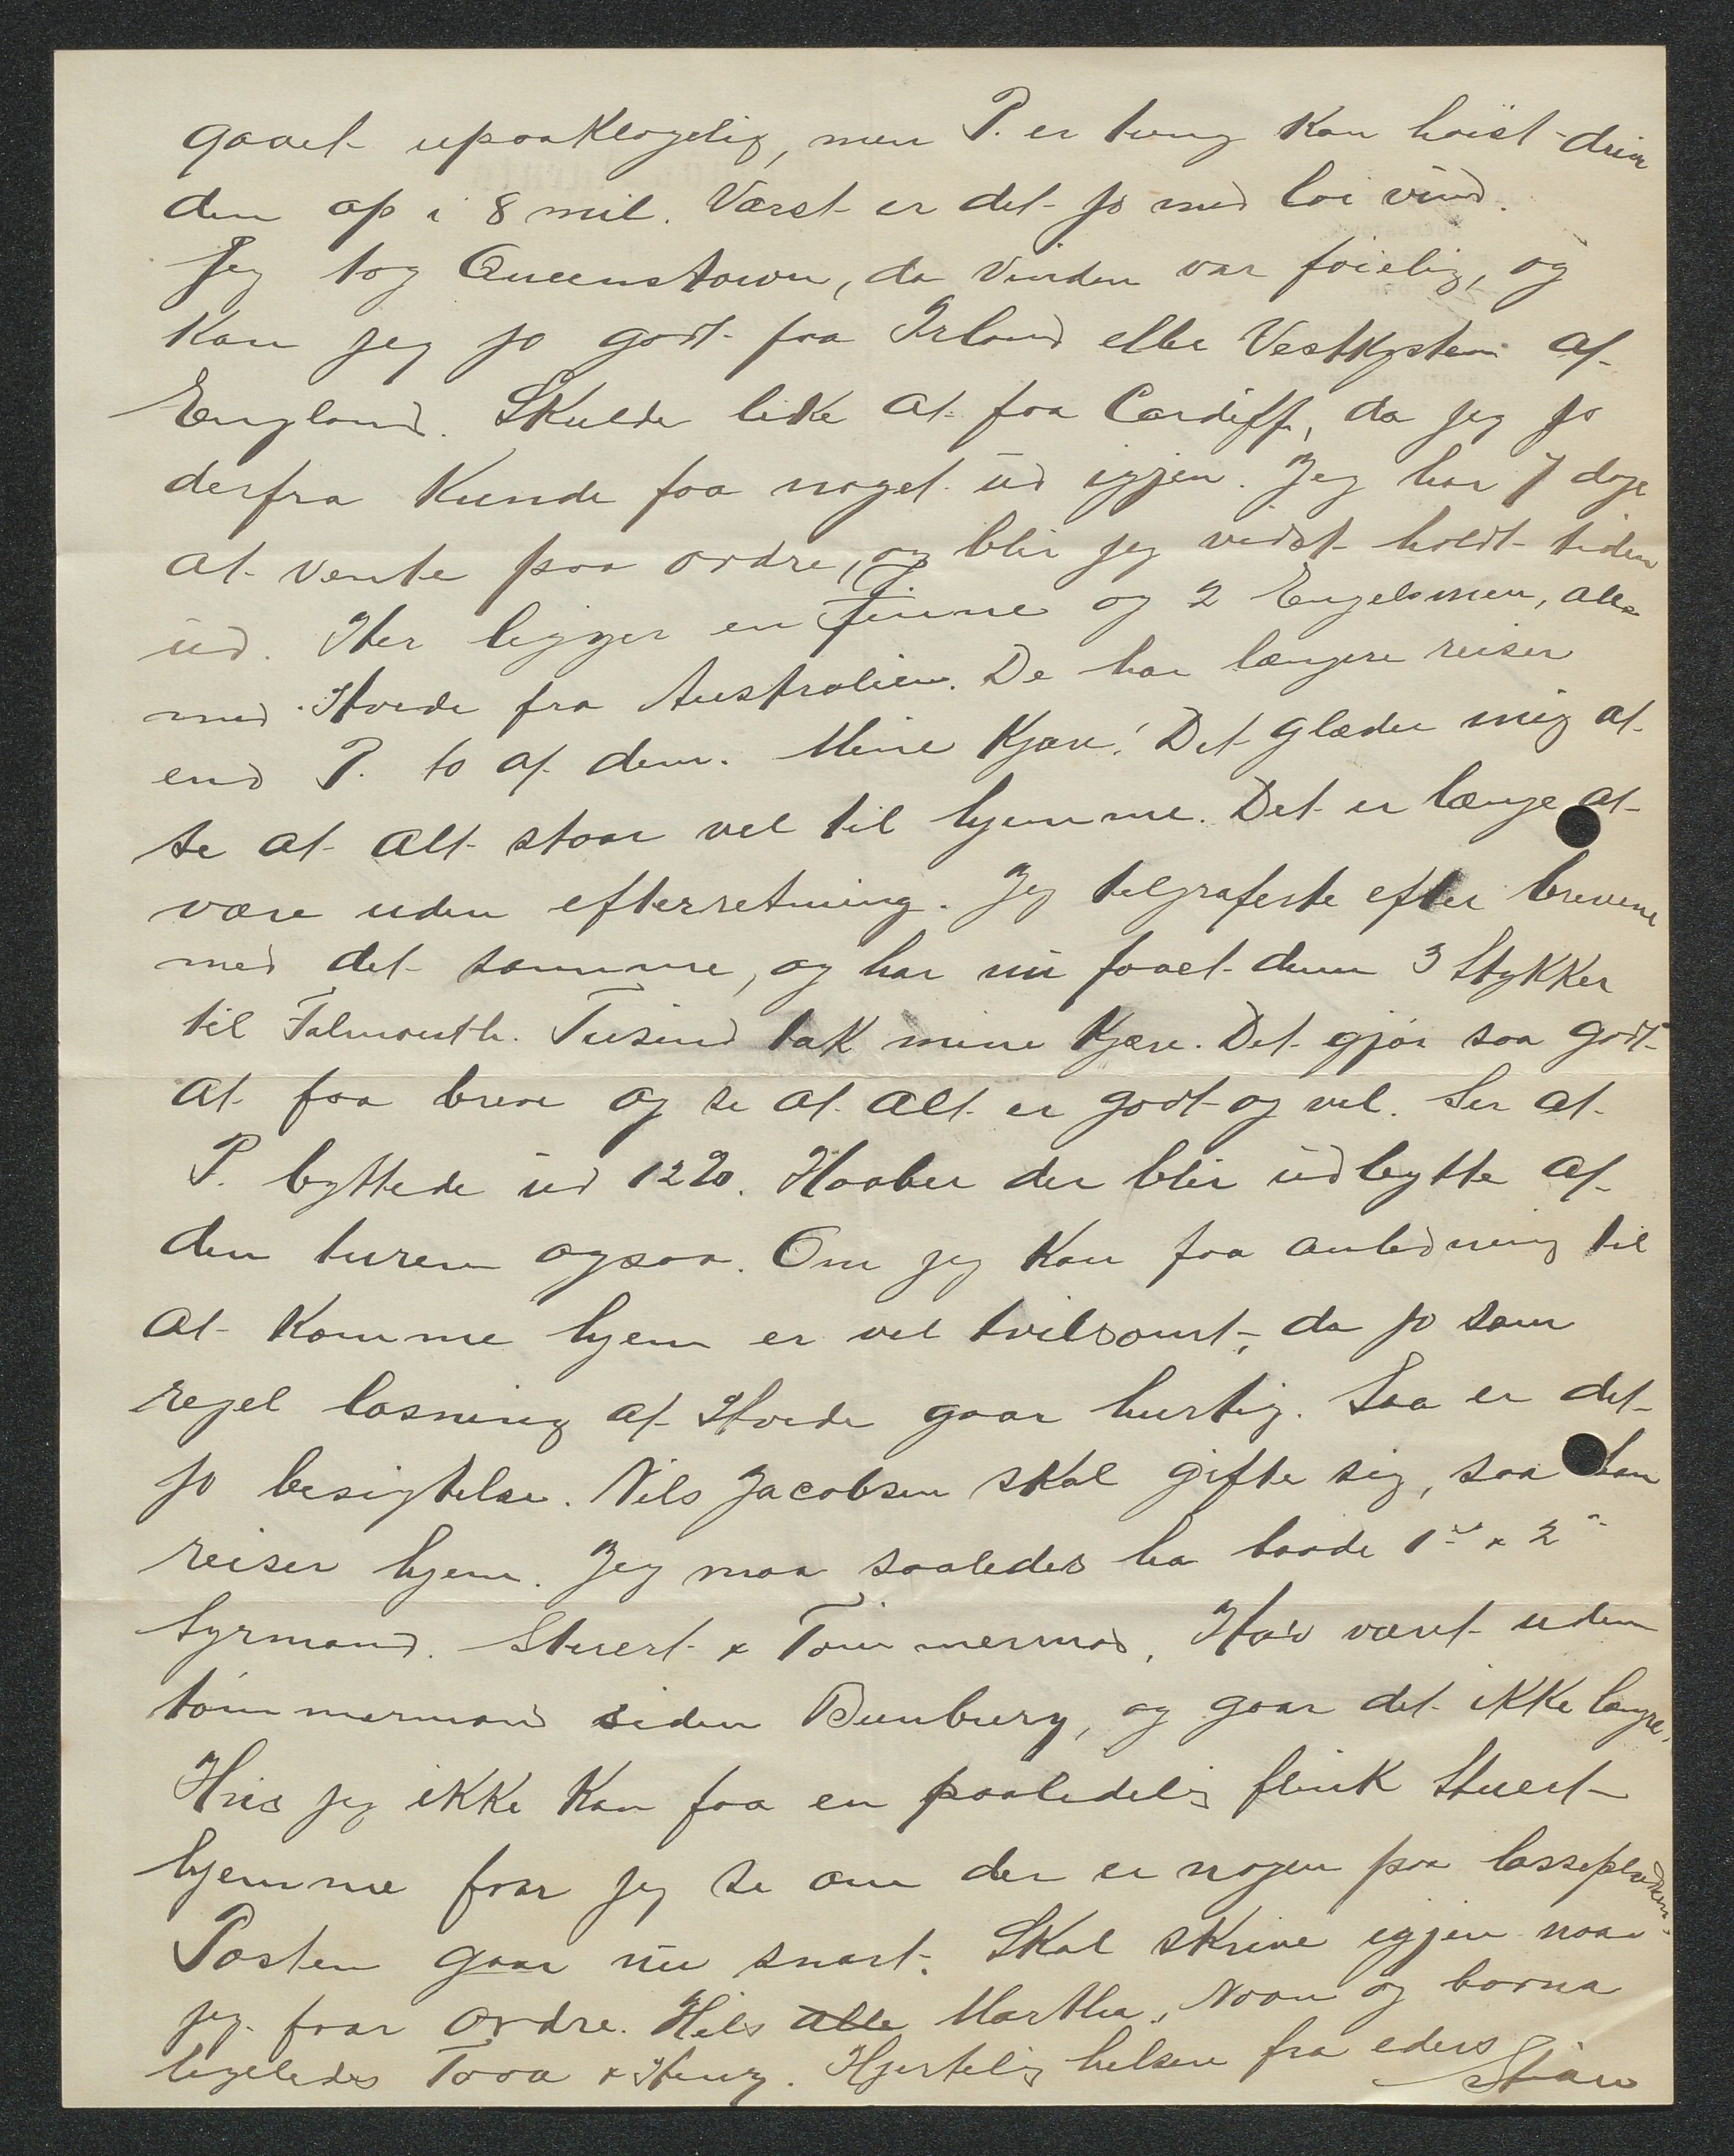 gaaet upaaklagelig, men P. er tung kan høist drive
den op i 8 mil. Værst er det jo med løi vind.
Jeg tog Queenstown, da vinden var føielig, og
kan jeg jo godt faa Irland eller Vestkysten af
England. Skulde like at faa Cardiff, da jeg jo
derfra kunde faa noget ud igjen. Jeg har 7 dage
at vente paa ordre, og blir jeg vidst holdt tiden
ud. Her ligger en Finne og 2 Engelsmen, alle
med Hvede fra Australien. De har længere reiser
end P. to af dem. Mine kjære! Det glæder mig at
se at alt staar vel til hjemme. Det er længe at
være uden efterretning. Jeg telgraferte efter brevene
med det samme, og har nu faaet dem 3 Stykker
til Falmouth. Tusind tak mine kjære. Det gjør saa godt
at faa breve og se at alt er godt og vel. Ser at
P. byttede ud 1220. Haaber der blir udbytte af
den turen ogsaa. Om jeg kan faa anledning til
at komme hjem er vel tvilsomt, da jo som
regel losning af Hvede gaar hurtig. Saa er det
jo besigtelse. Nils Jacobsen skal gifte sig, saa han
reiser hjem. Jeg maa saaledes ha baade 1ste & 2den
Styrmand. Stuert & Tømmermand. Har været uden
tømmermand siden Bunbury, og gaar det ikke længre.
Hvis jeg ikke kan faa en paalidelig flink Stuert
hjemme faar jeg se om der er nogen paa lossepladsen.
Posten gaar nu snart. Skal skrive igjen naar
jeg faar ordre. Hils alle Martha, og børna
ligeledes Tora & Henry. Hjertelig hilsen fra eders